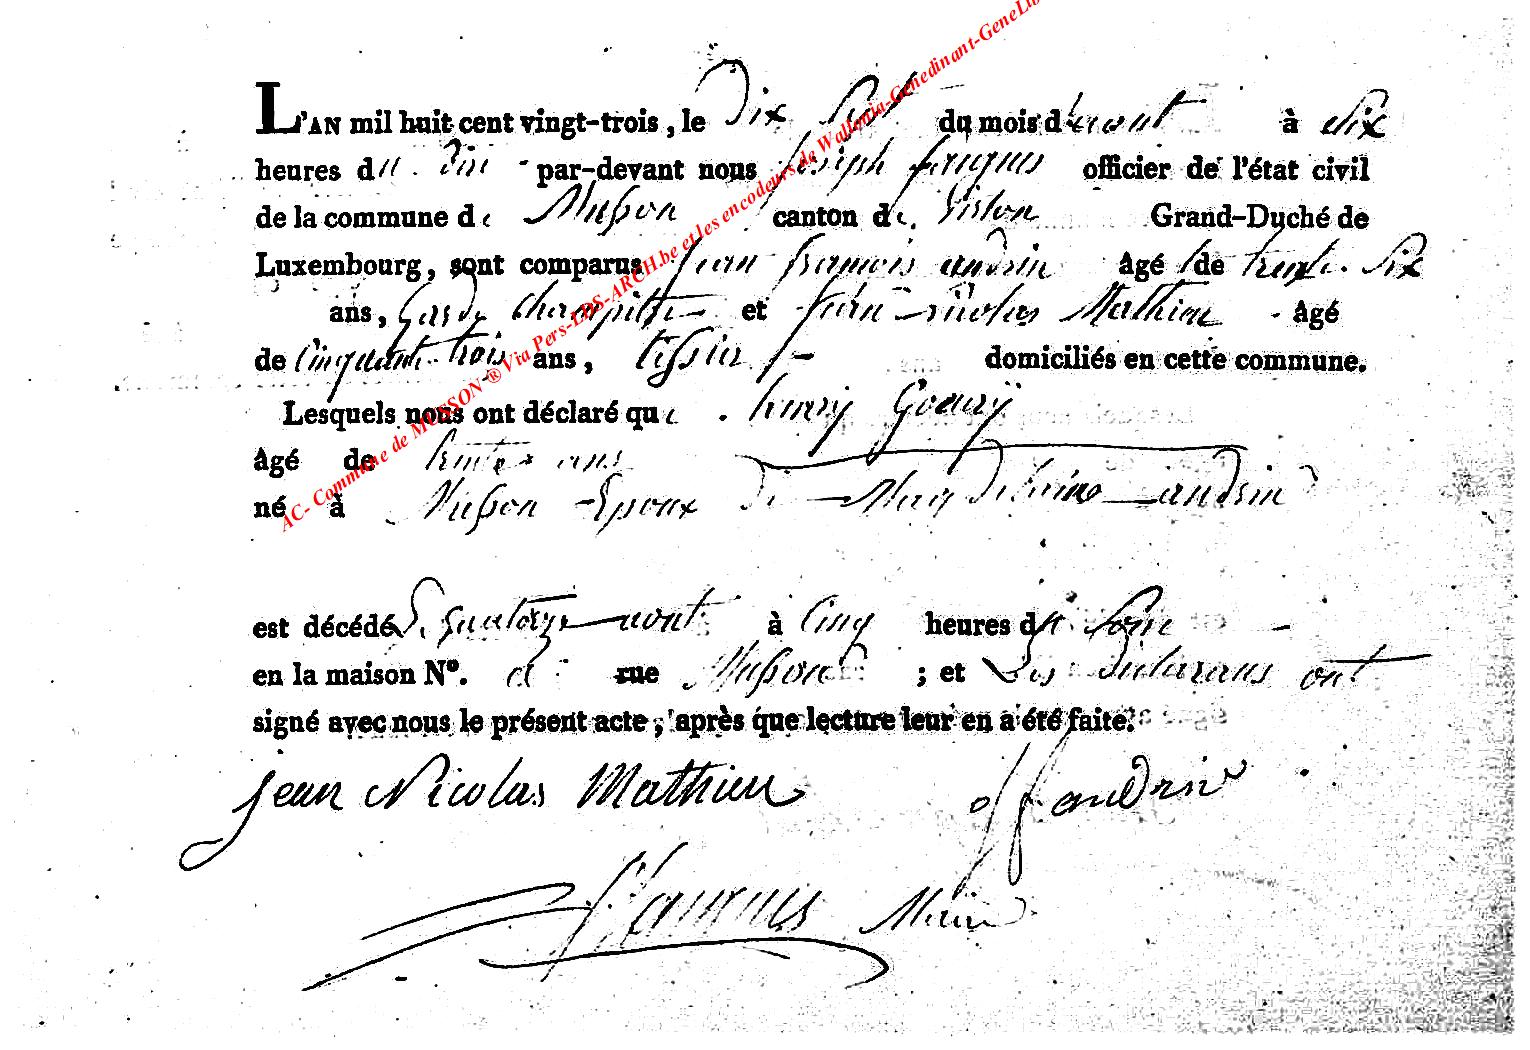 L'AN mil huit cent vingt-trois, le Dix Sept du mois d'aout à Six
heures du par-devant nous Joseph officier de l'état civil
de la commune de Musson canton de Virton Grand-Duché de
Luxembourg, sont comparus Jean francois andrin Agé de trente Six
ans, Garde Champettre et Jean nicolas Mathieu Agé
de Cinquant trois ans, tissier domiciliés en cette commune.
Lesquels nous ont déclaré que henry Goury
Agé de trente ans
né à Musson Epoux de Magdelaine andrin
est décédé le quatorze aout à Cinq heures du Soir
en la maison N°. rue Musson ; et Les declarans ont
signé avec nous le présent acte, après que lecture leur en a été faite.
Jean Nicolas Mathieu andrin
Maire
AC- Commune de MUSSON ® Via Pers-LDS-ARCH.be et les encodeurs de Wallonia-Genedinant-GeneLux